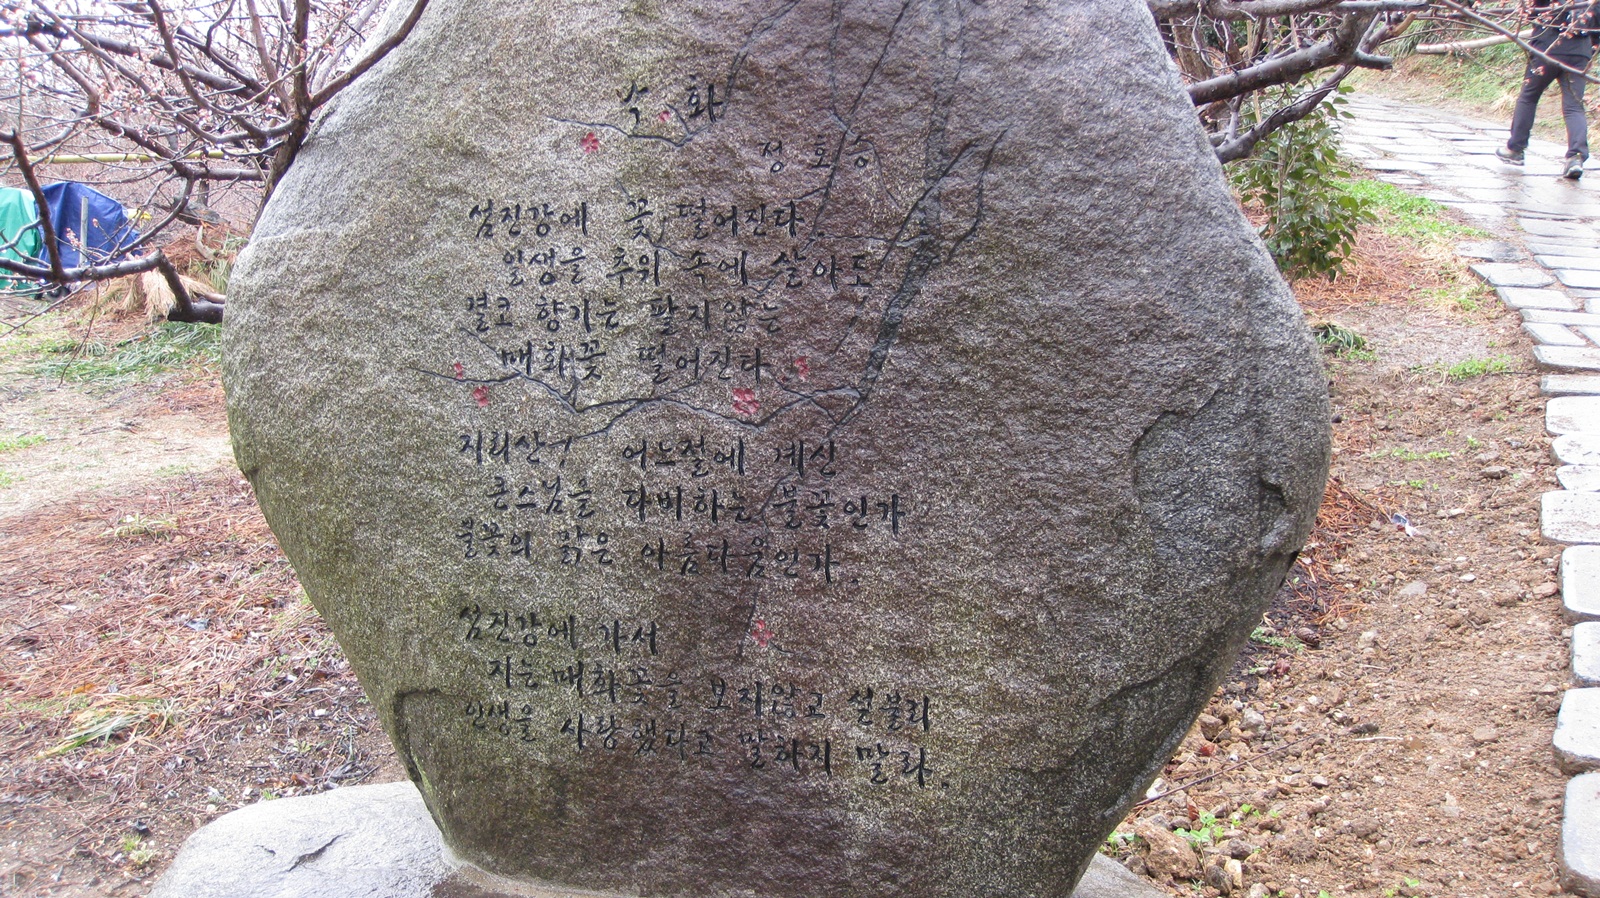 낙 화
정 호 승
섬진강에 꽃 떨어진다.
일생을 추위 속에 살아도
결코 향기는 팔지않는
매화꽃 떨어진다.
지리산 어느절에 계신
큰스님을 다비하는 불꽃인가
불꽃의 맑은 아름다움인가.
섬진강에 가서
지는 매화꽃을 보지않고 섣불리
인생을 사랑했다고 말하지 말라.